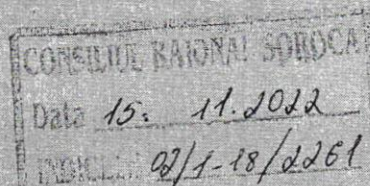 CONSILIUL RAIONAL SOROCA
Data 15. 11.2022
INDICELE 02/1-18/2261